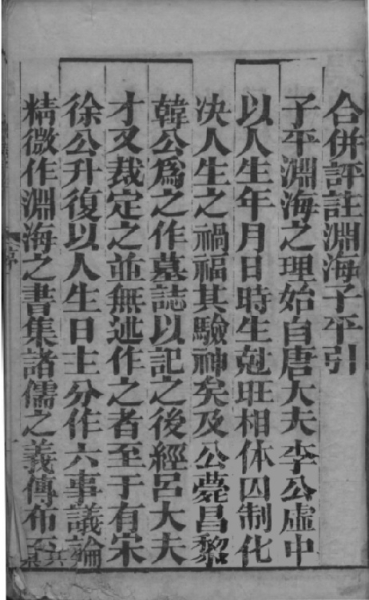 合併評註淵海子平引
子平淵海之理始自唐大夫李公虛中
以人生年月日時生剋旺相休囚制化
决人生之禍福其驗神矣及公薨昌黎
韓公爲之作墓誌以記之後經呂大夫
才又裁定之並無述作之者至于有宋
徐公升復以人生日主分作六事議論
精微作淵海之書集諸儒之義傳布至
序